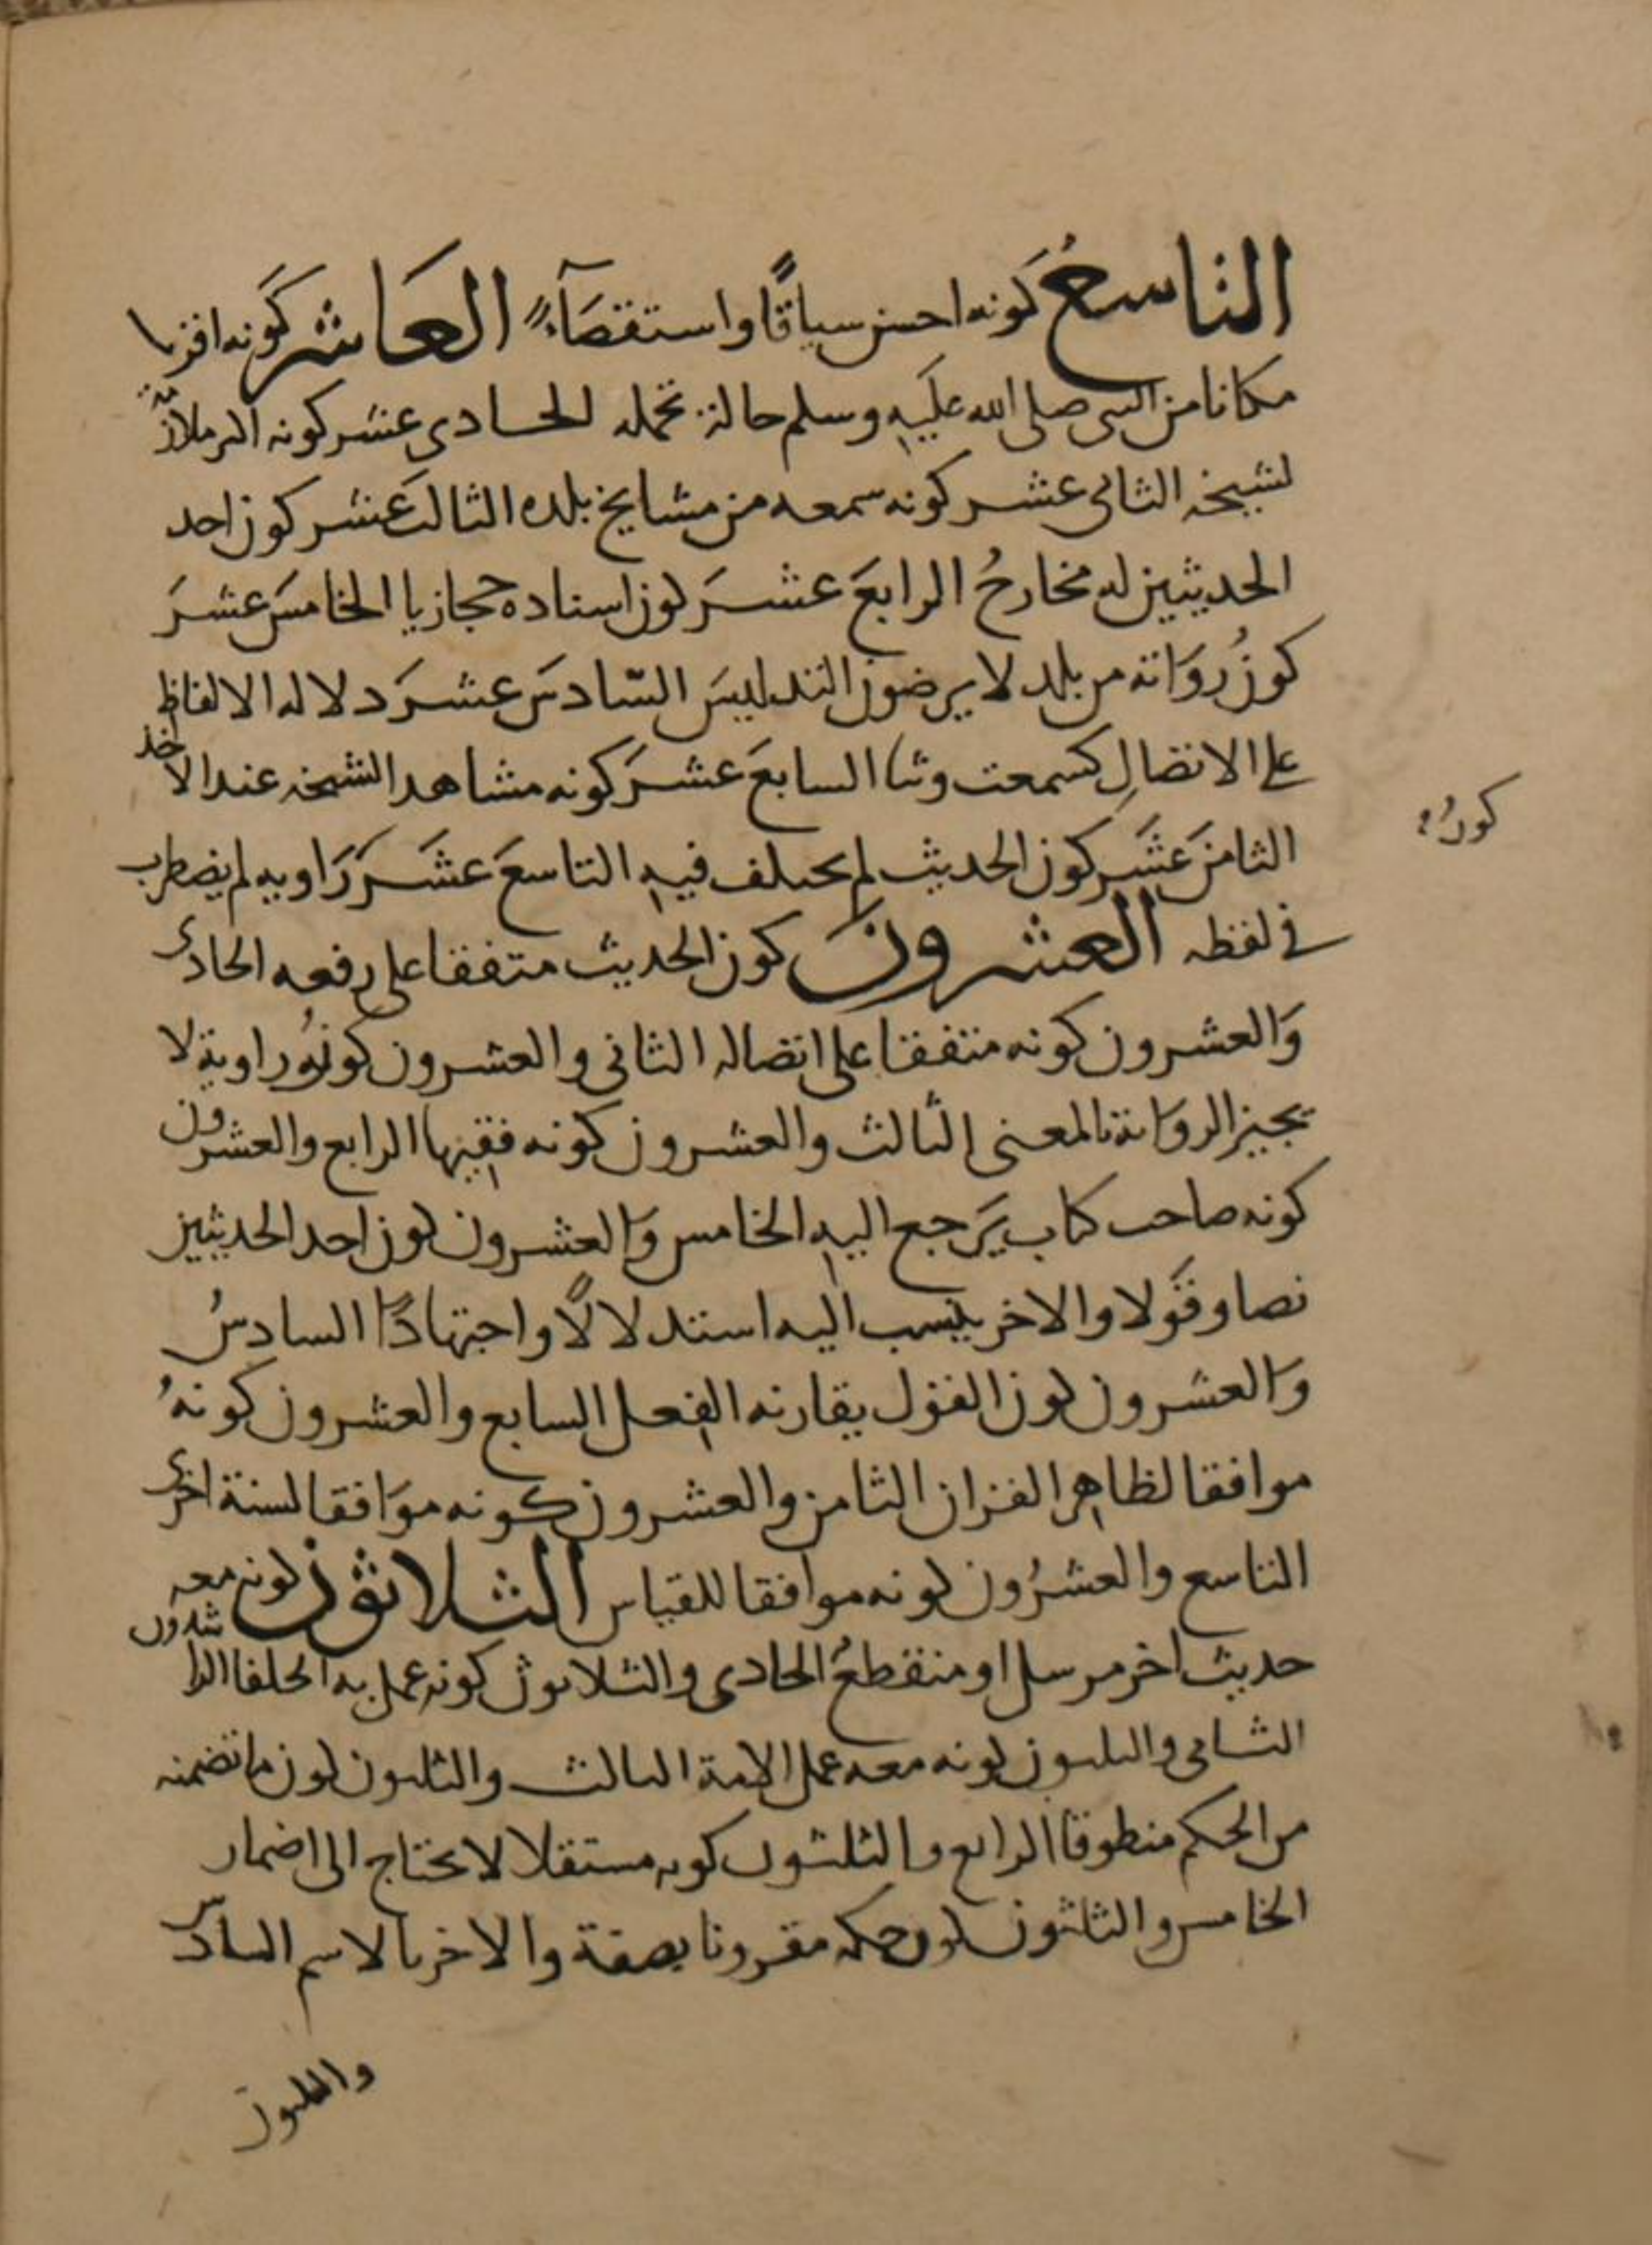 التاسعُ كونه احسن سياقًا واستقصَآءً العَاشر كَونه اقربا
مكانا من النبي صلى الله عليَه وسلم حالة تحمله الحادى عشر كونه اكثر ملازمة
لشيخه الثانى عشر كونه سمعه من مشايخ بلده الثالث عشر كون احد
الحديثين له مخارجُ الرابعَ عشَرَ كون اسناده حجازيا الخامسَ عشرَ
كونُ رُوَاته من بلد لا يرضون التدليسَ السّادسَ عشرَ دلاله الالفاظ
على الاتصالِ كسمعت وثنا السابعَ عشرَ كونه مشاهدا لشيخه عند الاخذ
الثامنَ عشَر كون الحديث لم يختلف فيه التاسعَ عشَرَ رَاويه لم يضطرب
كونُ
فى لفظه العشرونَ كون الحديث متفقا على رفعه الحادى
وَالعشرون كونه متفقا على اتصاله الثانى والعشرون كونُه راويه لا
يجيز الروَاية بالمعنى الثالث والعشرون كونه فقيها الرابع والعشرون
كونه صاحب كتاب يَرجع اليه الخامس وَالعشرون كون احد الحديثين
نصا وقَولا والاخر ينسب اليه استدلالًا واجتهادًا السادسُ
وَالعشرون كون القول يقارنه الفعل السابع والعشرون كونهُ
موافقا لظاهر القران الثامن والعشرون كونه موَافقا لسنة اخرى
التاسع والعشرُون كونه موافقا للقياس الثلاثون كونه معه
حديث اخر مرسل او منقطعُ الحادى والثلاثون كونه عمل به الخلفا الراشدون
الثانى والثلثون كونه معه عمل الامة الثالث والثلثون كون ما تضمنه
من الحكم منطوقا الرابع والثلثون كونه مستقلا لا يحتاج الى اضمار
الخامس والثلثون كون حكمه مقرونا بصفة والاخر بالاسم السادس
والثلثون